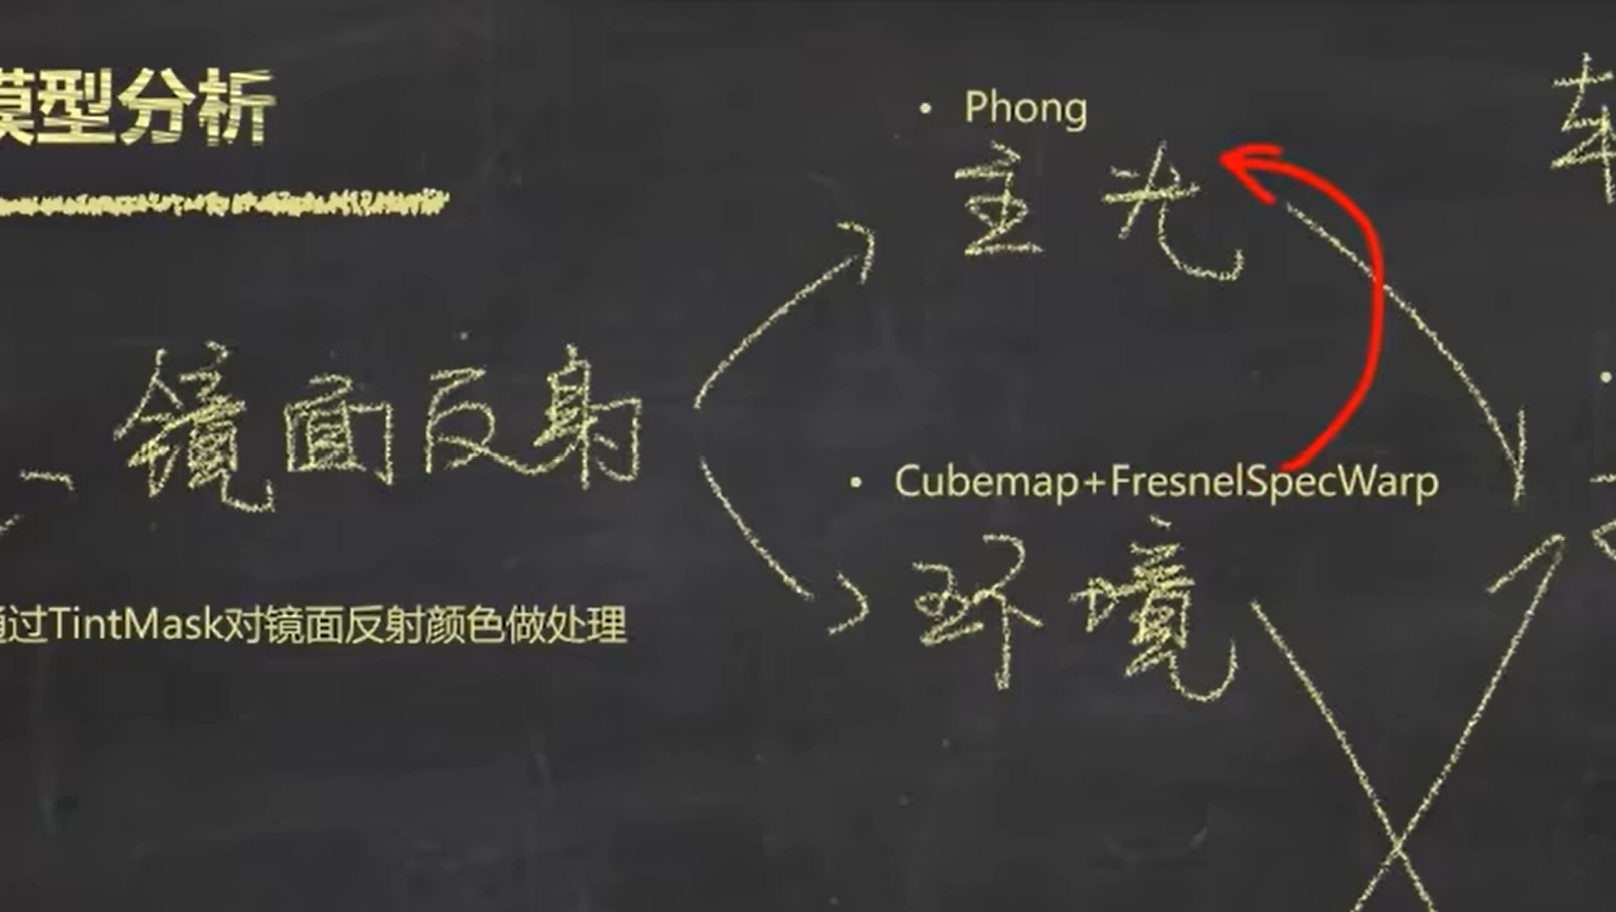 模型分析
• Phong
主光
镜面反射
• Cubemap+FresnelSpecWarp
环境
通过TintMask对镜面反射颜色做处理